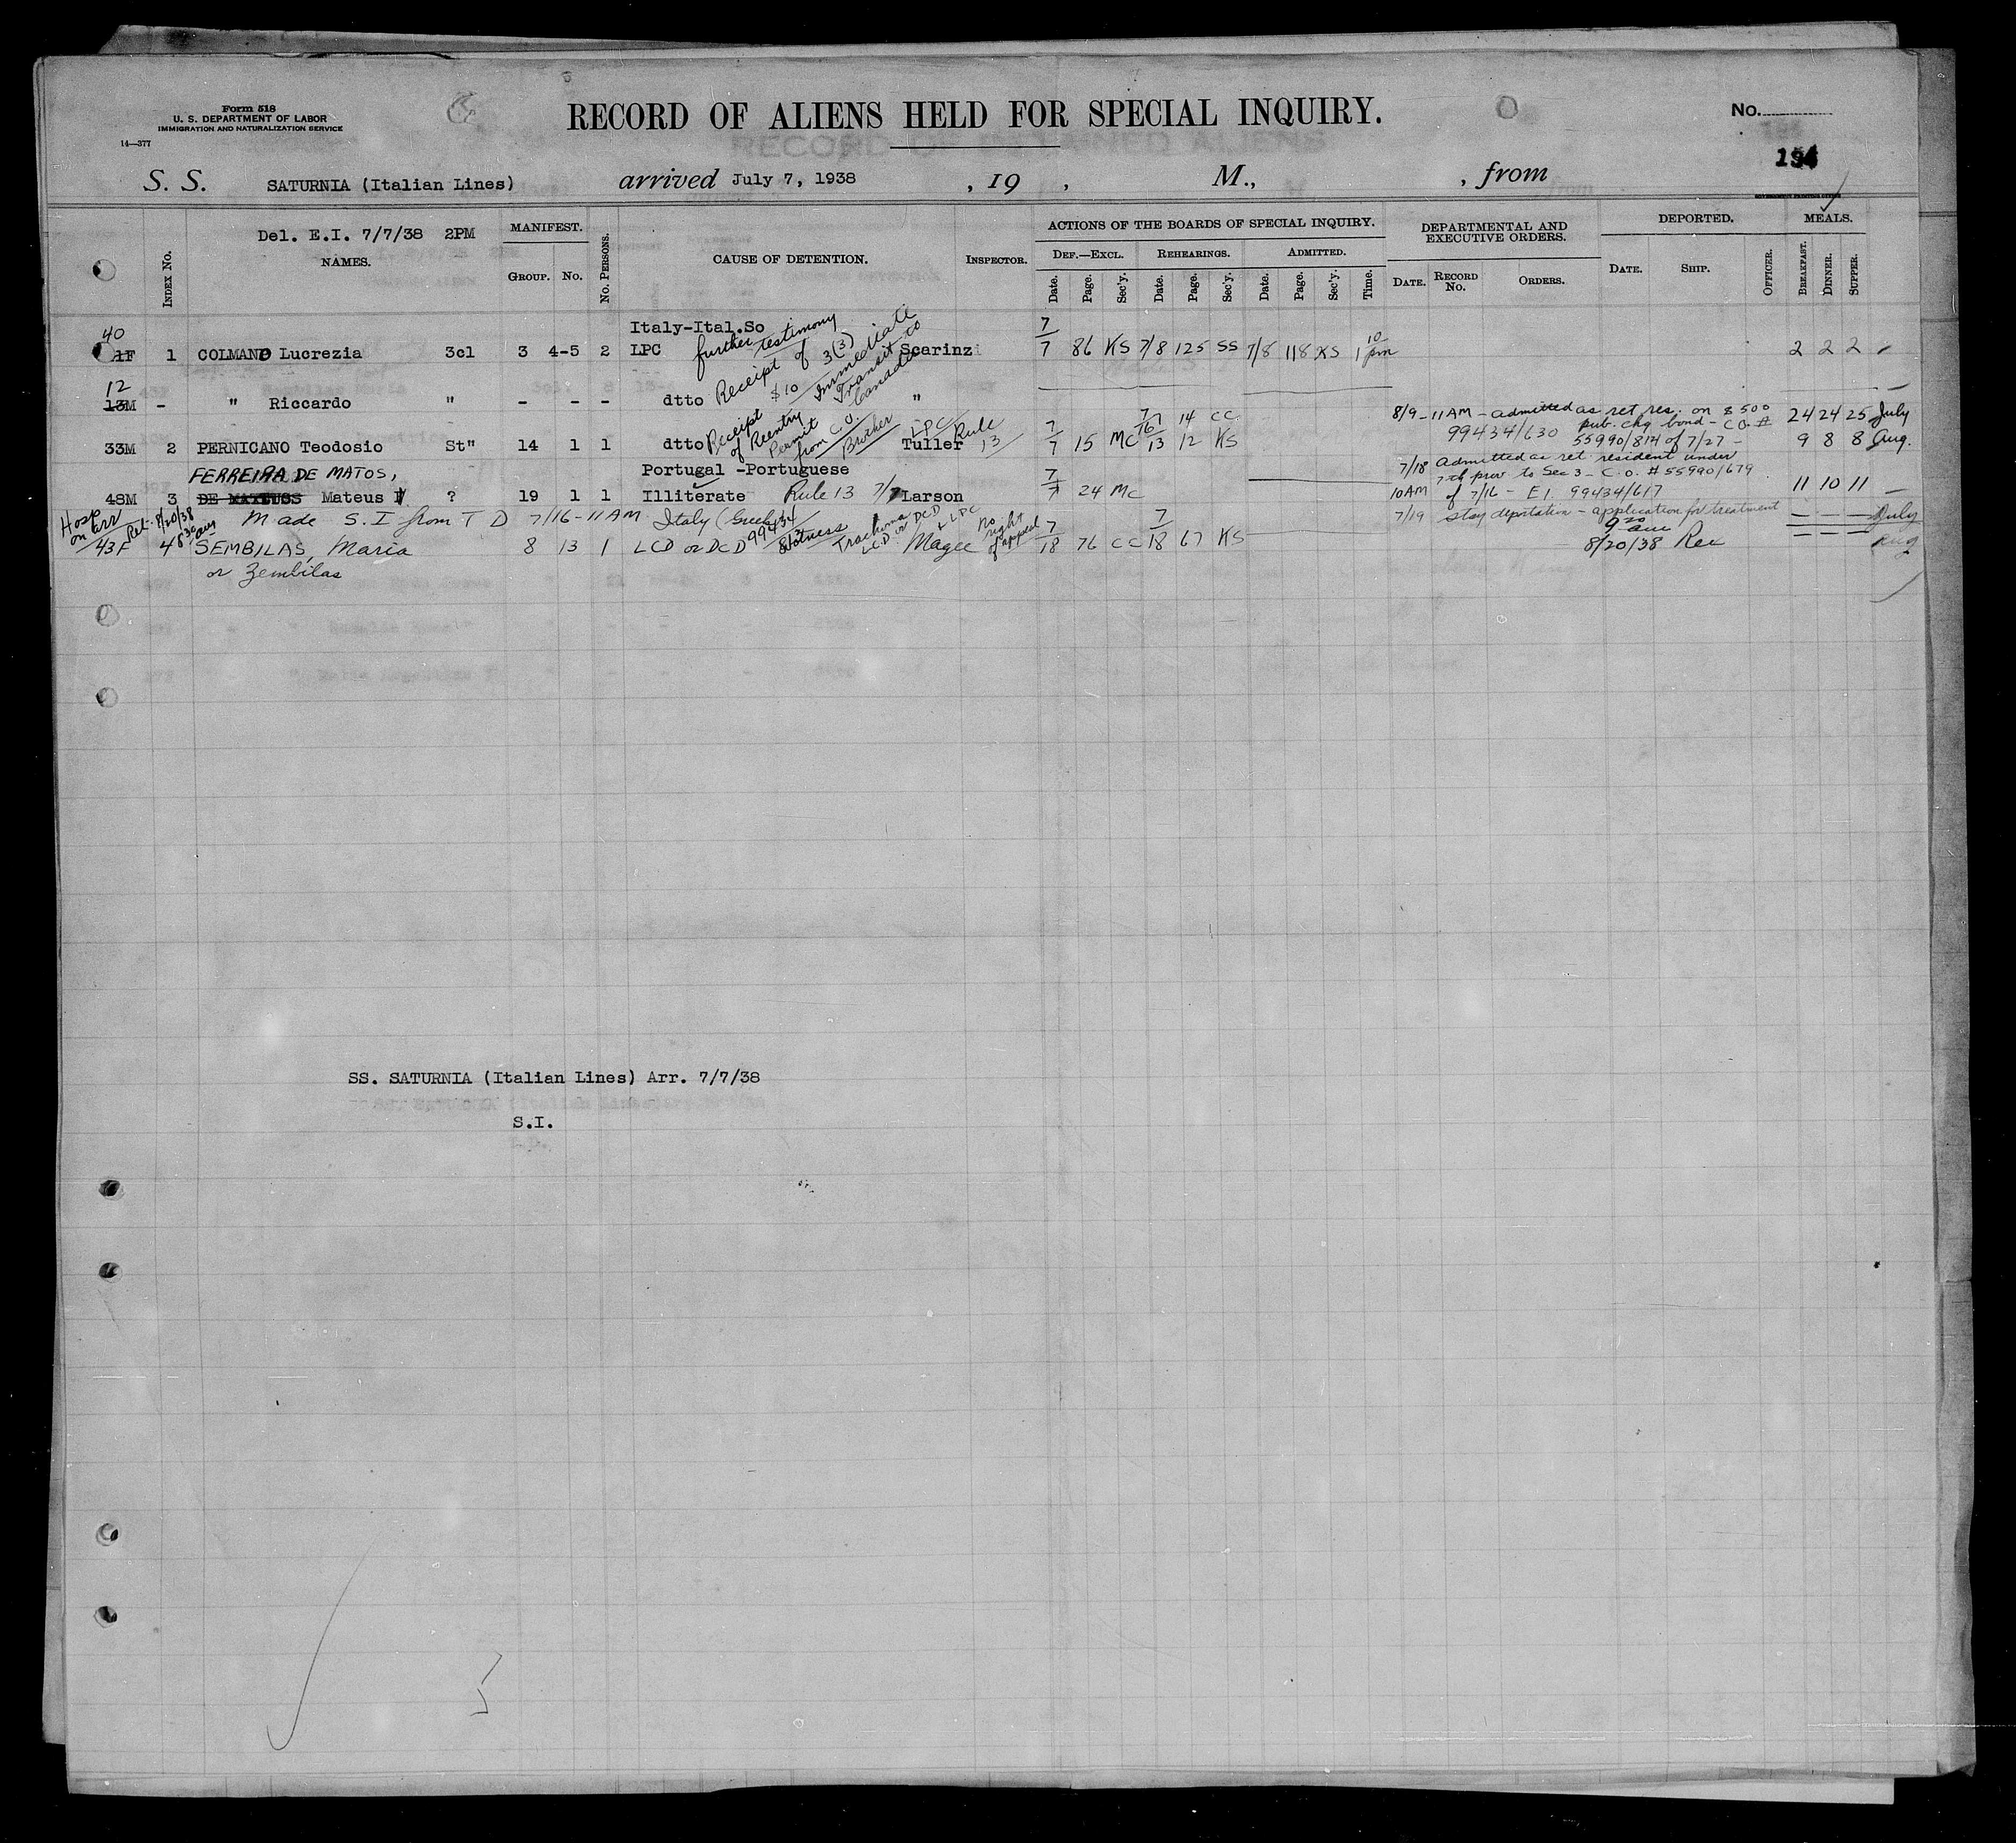 Form 518
U. S. DEPARTMENT OF LABOR
IMMIGRATION AND NATURALIZATION SERVICE
14—377
RECORD OF ALIENS HELD FOR SPECIAL INQUIRY.
No.
S. S. SATURNIA (Italian Lines) arrived July 7, 1938 , 19 , M., , from
Del. E.I. 7/7/38 2PM
INDEX No. NAMES. MANIFEST. GROUP. No. No. PERSONS. CAUSE OF DETENTION. INSPECTOR.
ACTIONS OF THE BOARDS OF SPECIAL INQUIRY.
DEF.—EXCL. REHEARINGS. ADMITTED.
Date. Page. Sec'y. Date. Page. Sec'y. Date. Page. Sec'y. Time.
DEPARTMENTAL AND EXECUTIVE ORDERS.
DATE. RECORD No. ORDERS.
DEPORTED.
DATE. SHIP. OFFICER.
MEALS.
BREAKFAST. DINNER. SUPPER.
Italy-Ital.So
40
1F 1 COLMANO Lucrezia 3cl 3 4-5 2 LPC further testimony Scarinzi 7/7 86 KS 7/8 125 SS 7/8 118 KS 1 10 pm 2 2 2
Receipt of 3(3)
$10 Immediate Transit to Canada
12
13M - " Riccardo " - - - dtto "
33M 2 PERNICANO Teodosio St" 14 1 1 dtto Receipt of Reentry Permit from C.O. Brother LPC Tuller Rule 13 7/7 15 MC 7/13 12 KS
7/6 14 CC
8/9-11AM - admitted as ret res. on $500
pub. chg bond - CO #
99434/630 55990/814 of 7/27 -
24 24 25 July
9 8 8 Aug.
FERREIRA DE MATOS,
Portugal -Portuguese
48M 3 DE MATTUSS Mateus ? 19 1 1 Illiterate Rule 13 7/7 Larson 7/7 24 MC
7/18 Admitted as ret. resident under
7th prov to Sec 3 - C.O. #55990/679
10AM of 7/16 - EI. 99434/617
11 10 11
Made S.I from T D 7/16-11AM Italy (Greek)
7/19 Stay deportation - application for treatment
— — — July
Hosp on arr Rel. 8/20/38 8 30 am
43F 4 SEMBILAS, Maria 8 13 1 LCD or DCD 99434 Witness Trachoma LCD or DCD & LPC Magee no right of appeal 7/18 76 CC 7/18 67 KS
9 20 am
8/20/38 Rex
— — — Aug
or Zembilas
SS. SATURNIA (Italian Lines) Arr. 7/7/38
S.I.